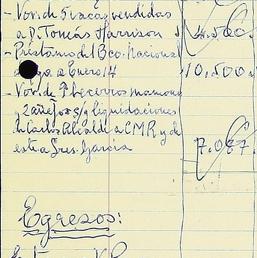 - Vor. de 5 vacas vendidas
a D. Tomás Harrison 4.500.-
- Préstamo del Bco. Nacional
pago a Enero 14 10.500.-
- Vor. de 9 becerros mamones
y 2 añejos s/ liquidaciones
de Carlos Alcalde a CMR y de
éste a Sres. García 7.087.-
Egresos: